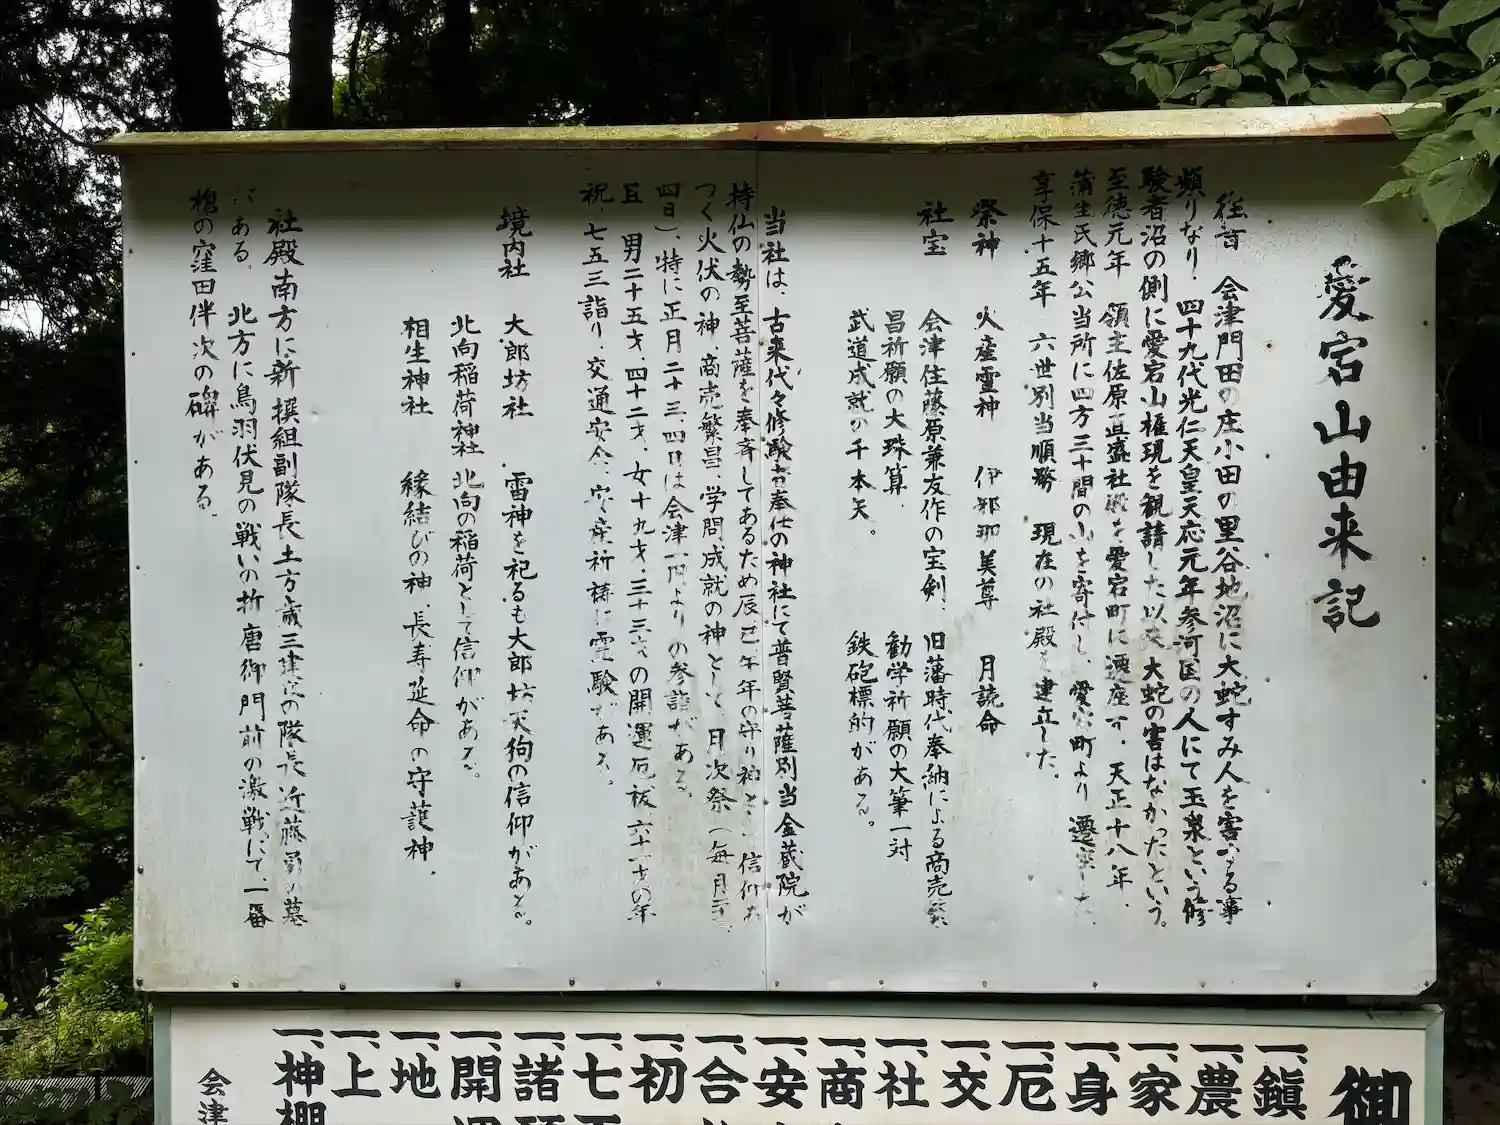 愛宕山由来記
往昔 会津門田の庄小田の里谷地沼に大蛇すみ人を害する事
頻りなり、四十九代光仁天皇天応元年参河国の人にて玉泉という修
験者沼の側に愛宕山権現を観請した以来大蛇の害はなかったという。
至徳元年 領主佐原直盛社殿を愛宕町に遷座す、天正十八年、
蒲生氏郷公当所に四方三十間の山を寄付し、愛宕町より遷座した、
享保十五年 六世別当順務 現在の社殿を建立した。
祭神 火産霊神 伊邪那美尊 月読命
社宝 会津住藤原兼友作の宝剣、旧藩時代奉納による商売繁
昌祈願の大珠算、勧学祈願の大筆一対
武道成就の千本矢。鉄砲標的がある。
当社は、古来代々修験者奉仕の神社にて普賢菩薩別当金蔵院が
持仏の勢至菩薩を奉斉してあるため辰、巳、午年の守り神と 信仰あ
つく火伏の神、商売繁昌、学問成就の神として、月次祭(毎月
四日)、特に正月二十三、四日は会津一円よりの参詣がある。
男二十五才、四十二才、女十九才、三十三才の開運厄祓、六十一才の年
祝、七五三詣り、交通安全、安産祈祷に霊験がある。
境内社 大郎坊社 雷神を祀るも大郎坊天狗の信仰がある。
北向稲荷神社 北向の稲荷として信仰がある。
相生神社 縁結びの神、長寿延命の守護神。
社殿南方に新撰組副隊長土方歳三建立の隊長近藤勇の墓
がある。 北方に鳥羽伏見の戦いの折唐御門前の激戦にて、一番
槍の窪田伴次の碑がある。
御
一、鎮
一、農
一、家
一、身
一、厄
一、交
一、社
一、商
一、安
一、合
一、初
一、七五
一、諸
一、開運
一、地
一、上
一、神棚
会津